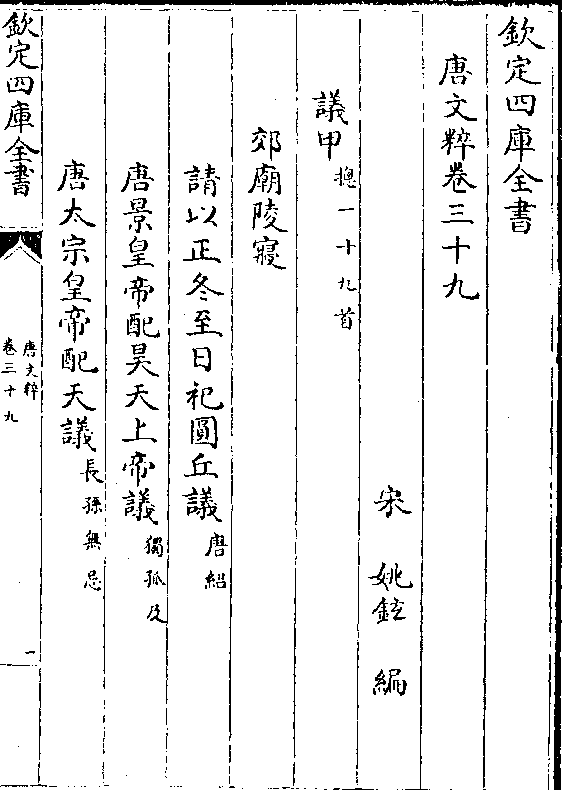 欽定四庫全書
唐文粹卷三十九
宋 姚鉉 編
議甲 摠一十九首
郊廟陵寢
請以正冬至日祀圓丘議 唐紹
唐景皇帝配昊天上帝議 獨孤及
唐太宗皇帝配天議 長孫無忌
欽定四庫全書
唐文粹
卷三十九
一